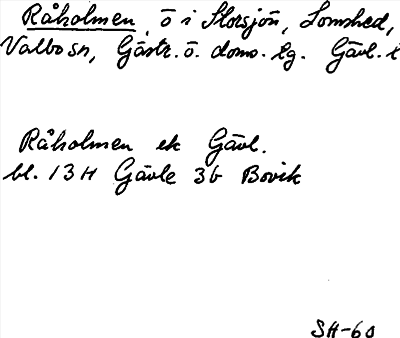 Råholmen, ö i Storsjön,
Valbo sn, Gästr. ö. doms. tg. Gävl. l
Råholmen ek Gävl.
bl. 13H Gävle 3b Bovik
SH-60